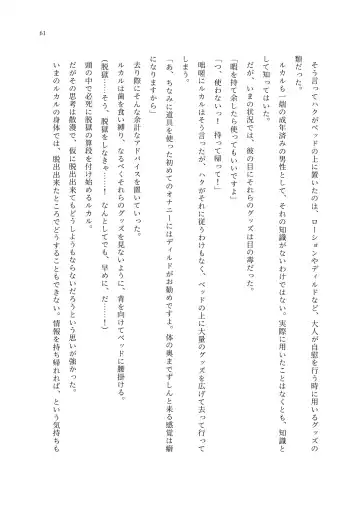 そう言ってハクがベッドの上に置いたのは、ローションやディルドなど、大人が自慰を行う時に用いるグッズの
類だった。
ルカルも一端の成年済みの男性として、それの知識がないわけではない。実際に用いたことはなくとも、知識と
して知ってはいた。
だが、いまの状況では、彼の目にそれらのグッズは目の毒だった。
「暇を持て余したら使ってもいいですよ」
「つ、使わないっ！　持って帰って！」
咄嗟にルカルはそう言ったが、ハクがそれに従うわけもなく、ベッドの上に大量のグッズを広げて去って行って
しまう。
「あ、ちなみに道具を使った初めてのオナニーにはディルドがお勧めですよ。体の奥までずしんと来る感覚は癖
になりますから」
去り際にそんな余計なアドバイスを置いていった。
ルカルは歯を食い縛り、なるべくそれらのグッズを見ないように、背を向けてベッドに腰掛ける。
（脱獄……そう、脱獄をしなきゃ……！　なんとしてでも、早めに、だ……！）
頭の中で必死に脱獄の算段を付け始めるルカル。
だがその思考は散漫で、仮に脱出出来てもどうしようもならないだろうという思いが強かった。
いまのルカルの身体では、脱出出来たところでどうすることもできない。情報を持ち帰れれば、という気持ちも
61